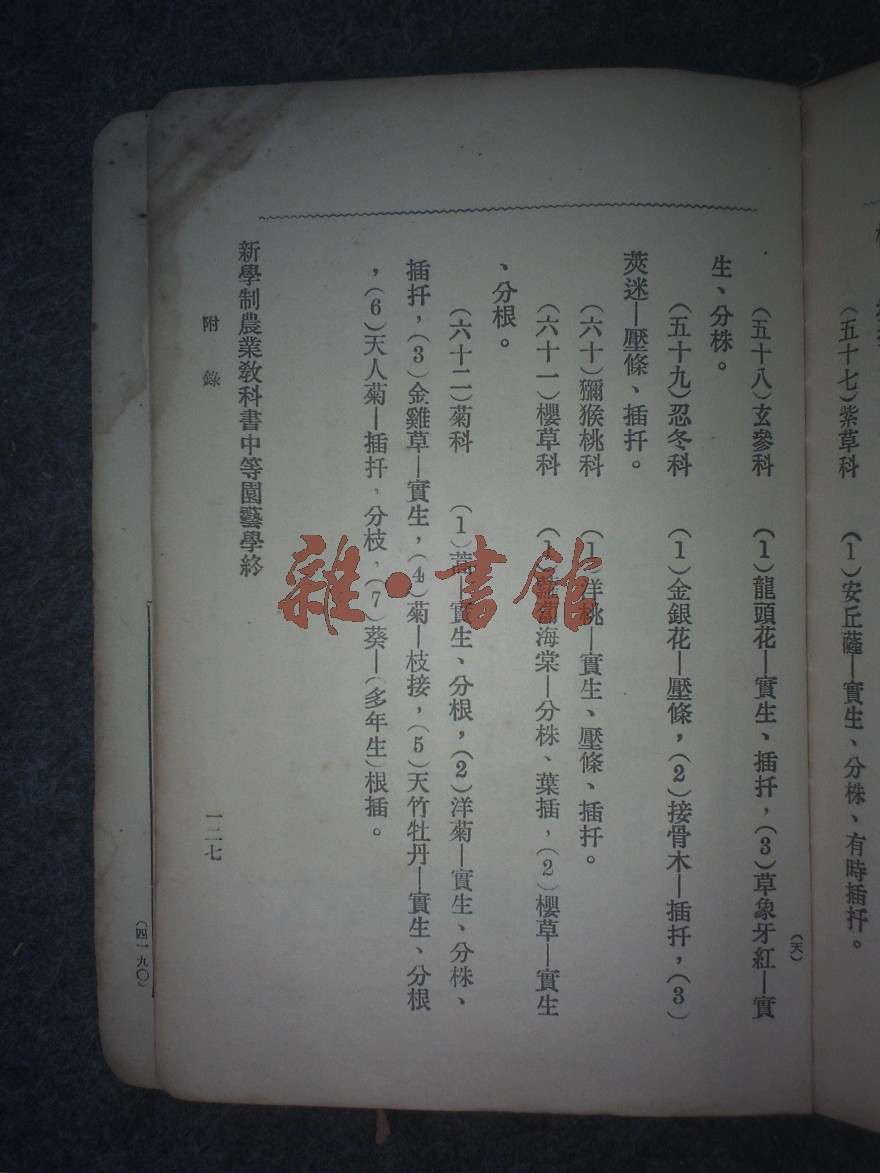 (五十七)紫草科　(1)安丘薩—實生、分株、有時插扦。
(天)
(五十八)玄參科　(1)龍頭花—實生、插扦，(3)草象牙紅—實
生、分株。
(五十九)忍冬科　(1)金銀花—壓條，(2)接骨木—插扦，(3)
莢迷—壓條、插扦。
(六十)獼猴桃科　(1)洋桃—實生、壓條、插扦。
(六十一)櫻草科　(1)海棠—分株、葉插，(2)櫻草—實生
、分根。
(六十二)菊科　(1)蒿—實生、分根，(2)洋菊—實生、分株、
插扦，(3)金雞草—實生，(4)菊—枝接，(5)天竹牡丹—實生、分根
，(6)天人菊—插扦、分枝、(7)葵—(多年生)根插。
新學制農業教科書中等園藝學終
附錄
一二七
(四一九〇)
雜·書館